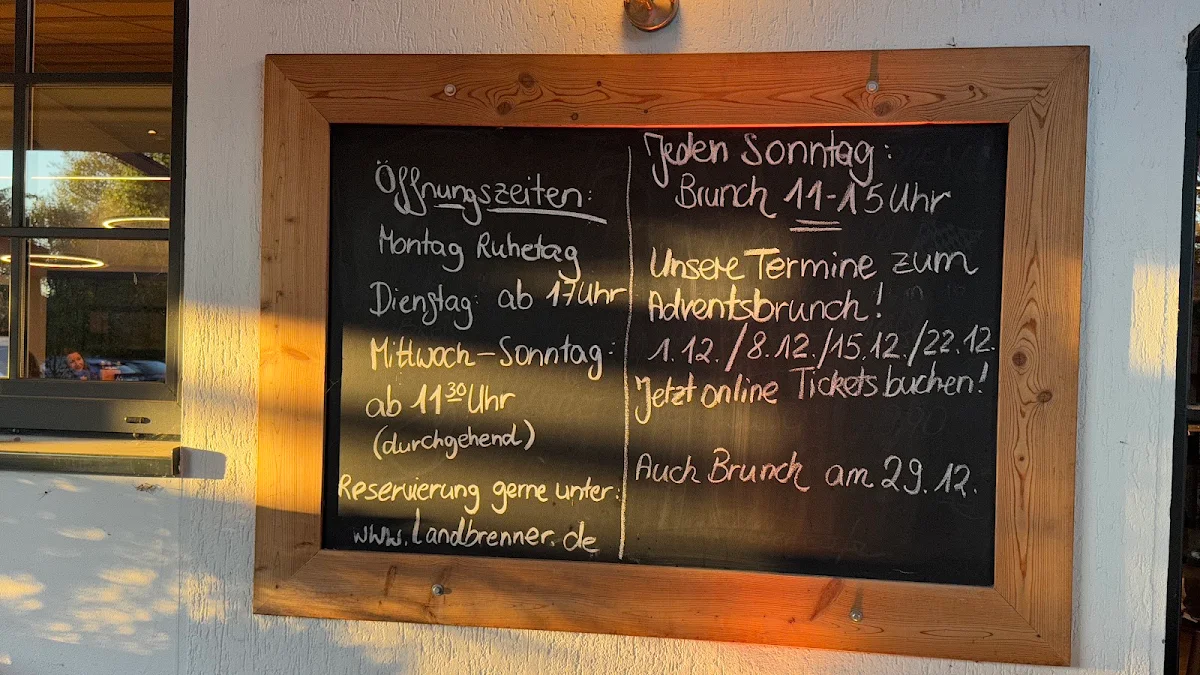 Öffnungszeiten:
Montag Ruhetag
Dienstag: ab 17 Uhr
Mittwoch – Sonntag:
ab 11³⁰ Uhr
(durchgehend)
Reservierung gerne unter:
www.landbrenner.de
Jeden Sonntag:
Brunch 11-15 Uhr
Unsere Termine zum
Adventsbrunch!
1.12./8.12./15.12./22.12.
Jetzt online Tickets buchen!
Auch Brunch am 29.12.